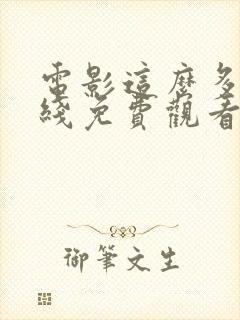 電影這麼多
綫免費觀看
御筆文生